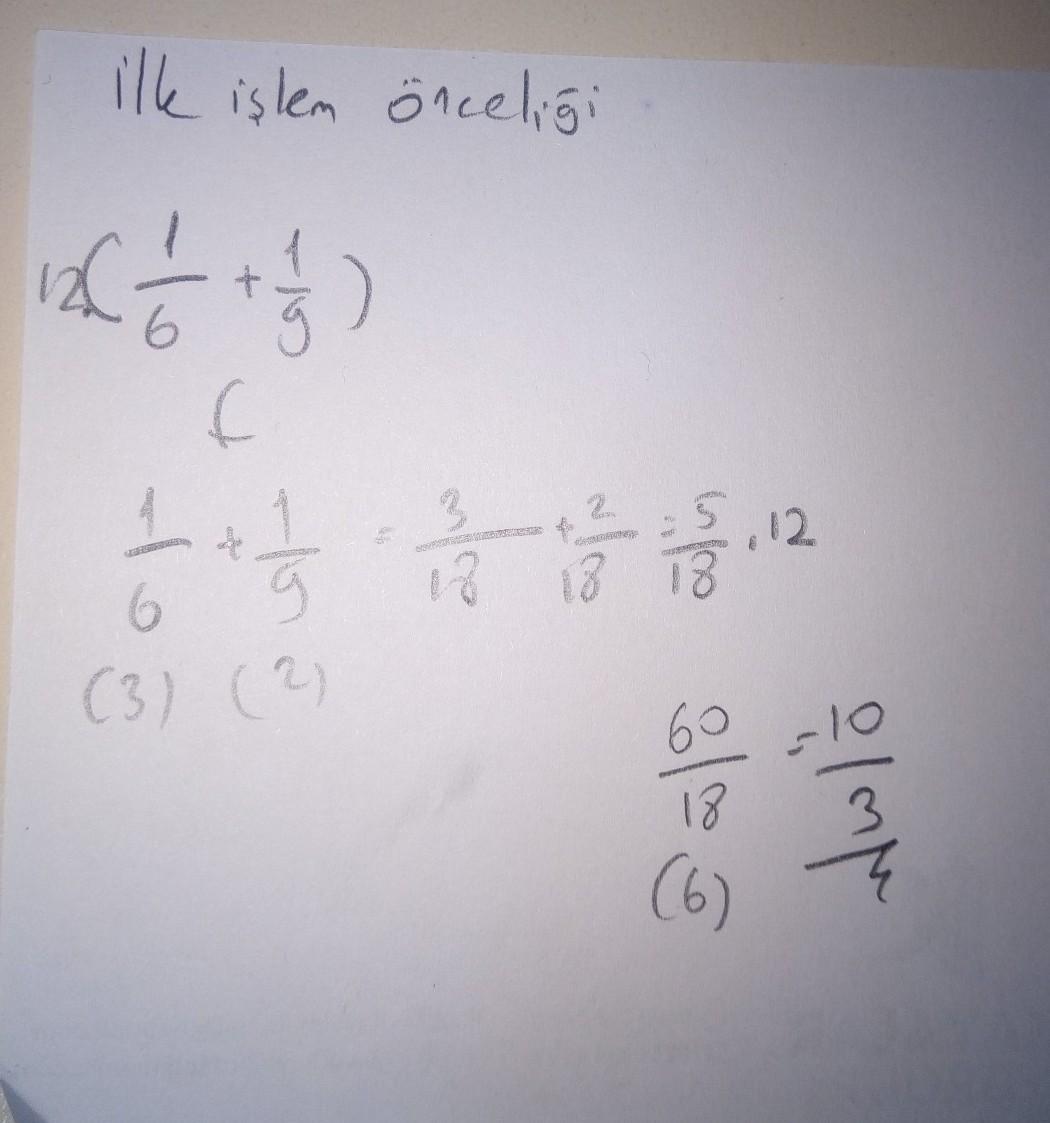 ilk işlem önceliği
12(1/6 + 1/9)
(
1/6 + 1/9 = 3/18 + 2/18 = 5/18 . 12
(3) (2)
60/18 = 10/3
(6)